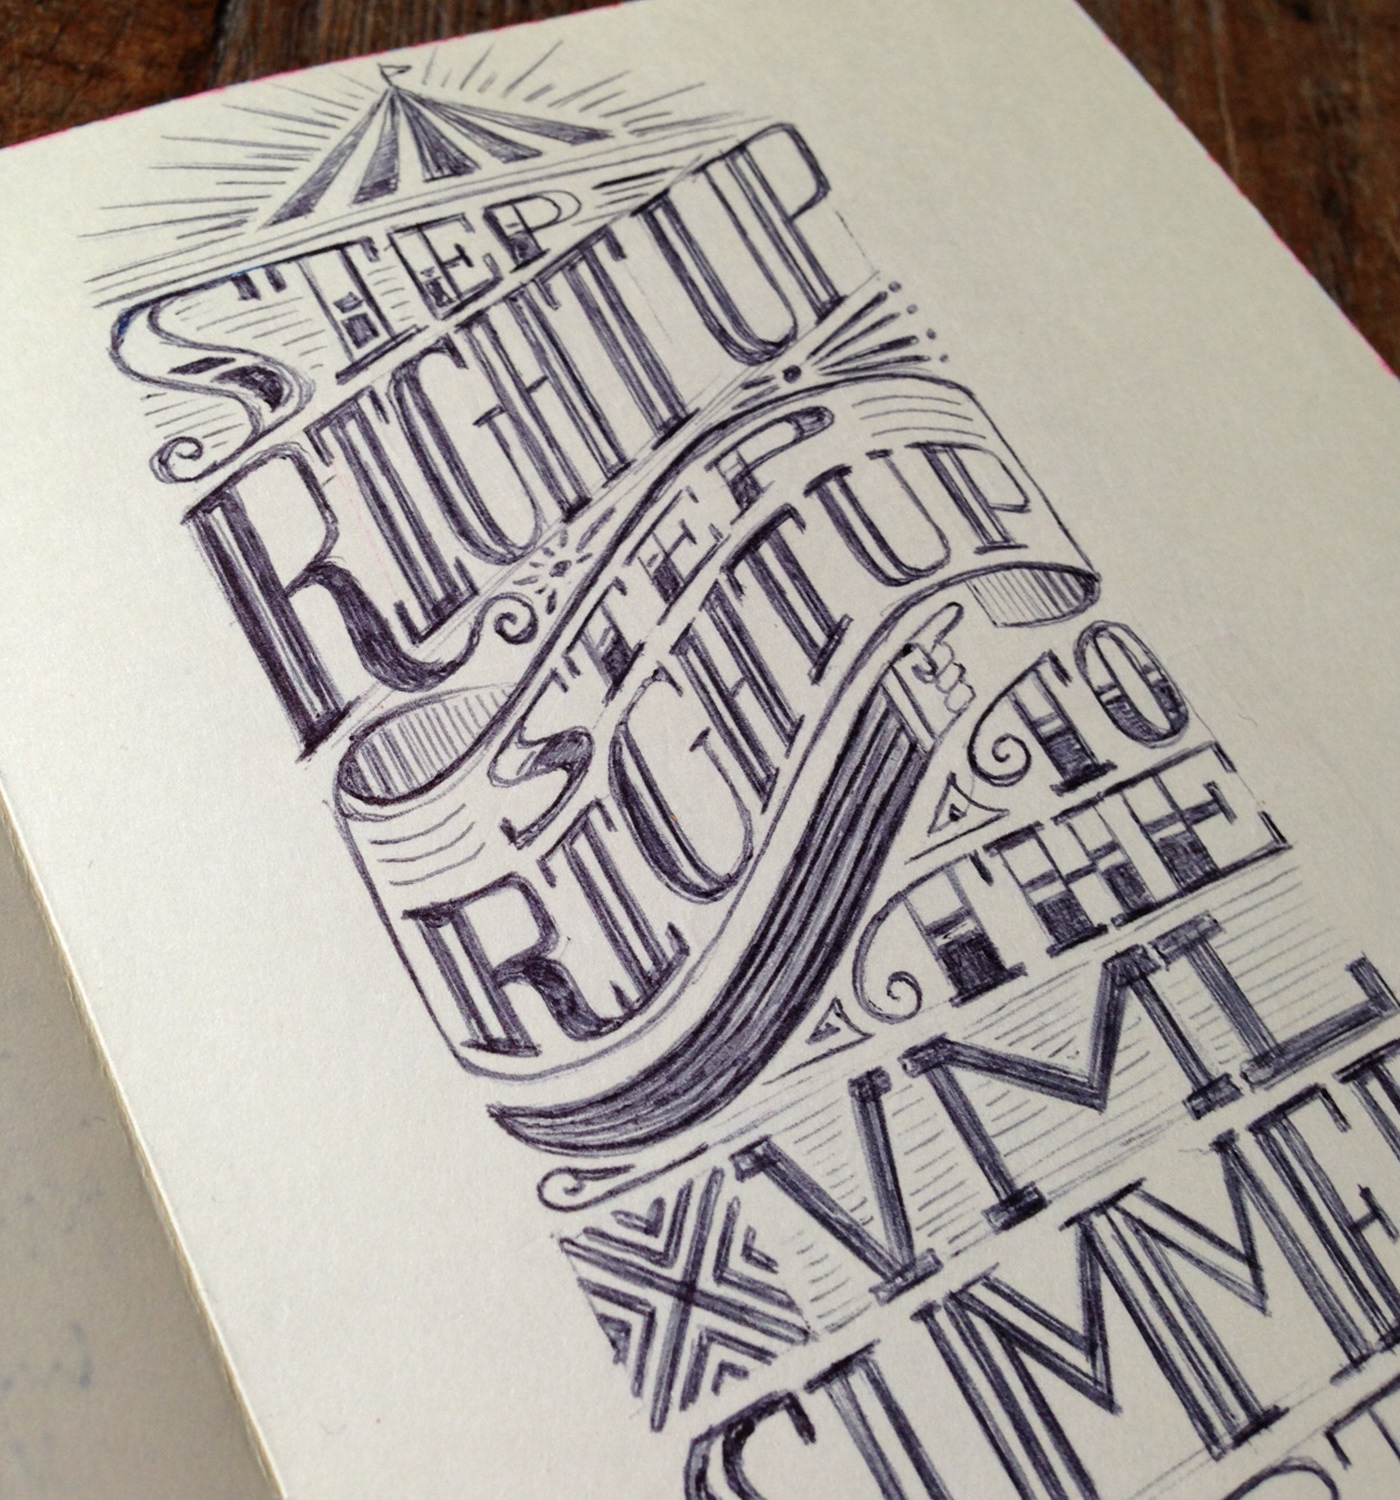 STEP
RIGHT UP
STEP
RIGHT UP
TO
THE
VML
SUMMER